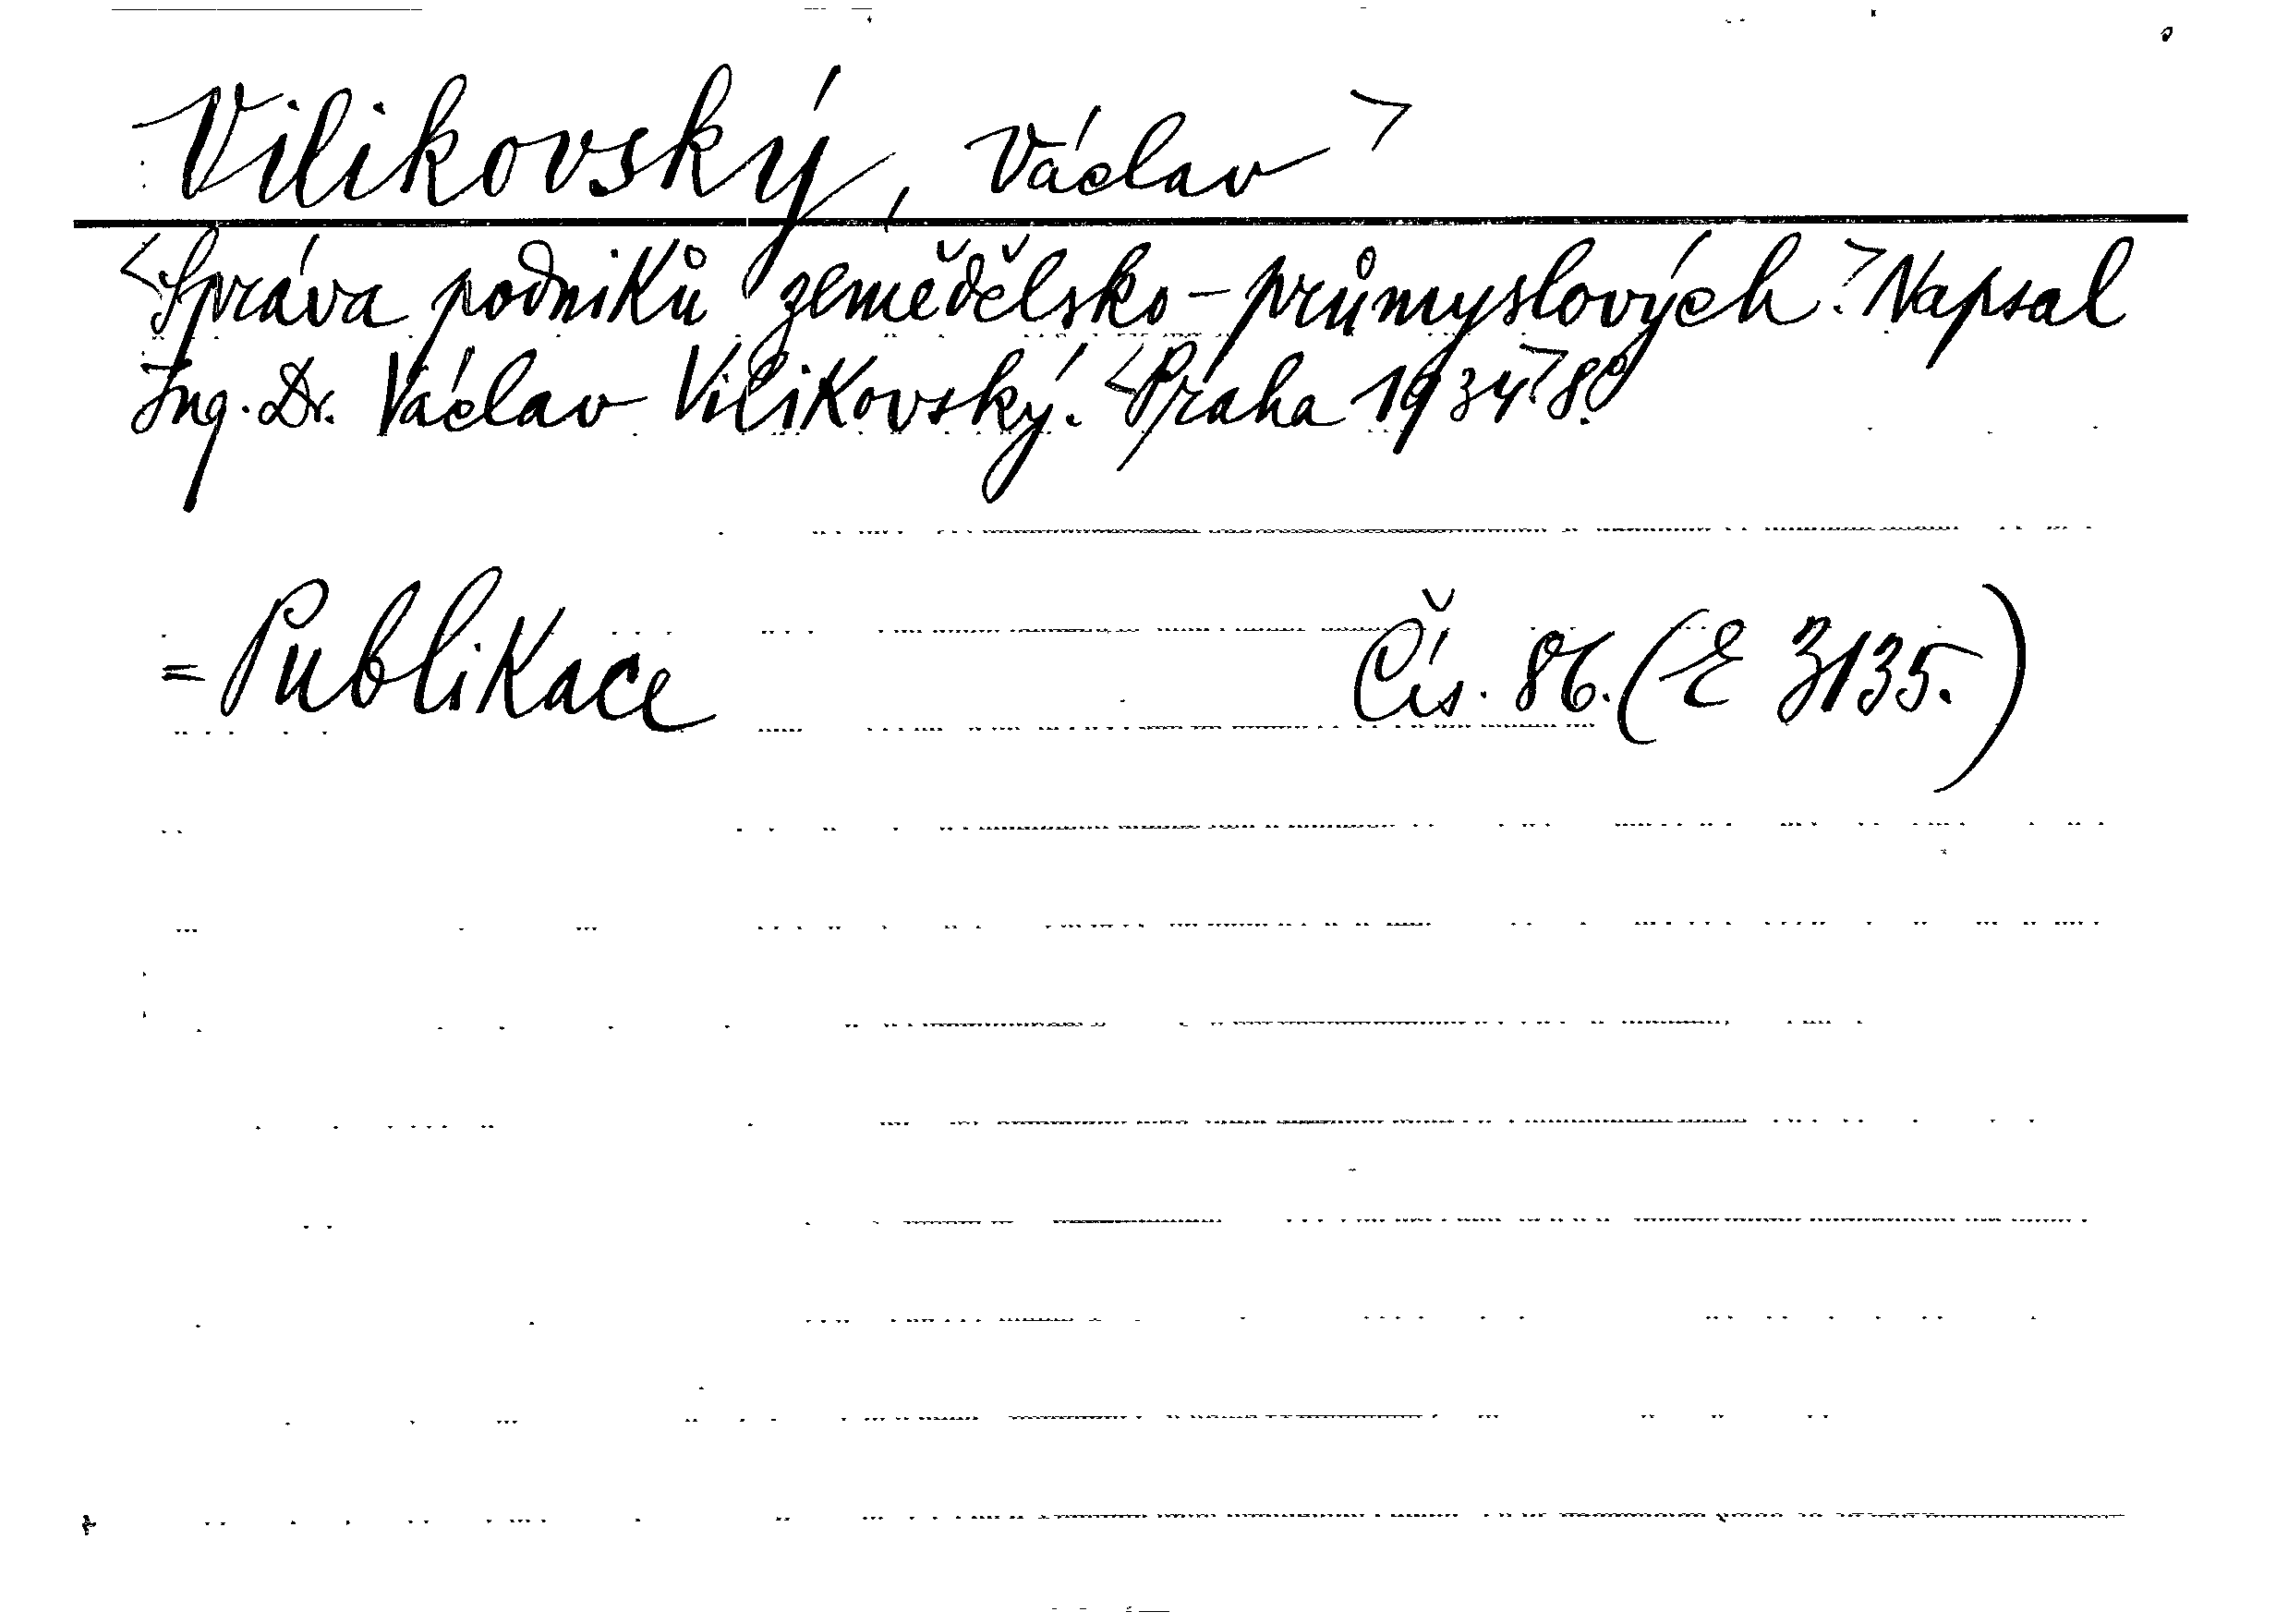 Vilikovský, Václav>
<Správa podniků zemědělsko-průmyslových.> Napsal
Ing. Dr. Václav Vilikovský. <Praha 1934> 8°.
= Publikace Čís. 86. (E 3135.)